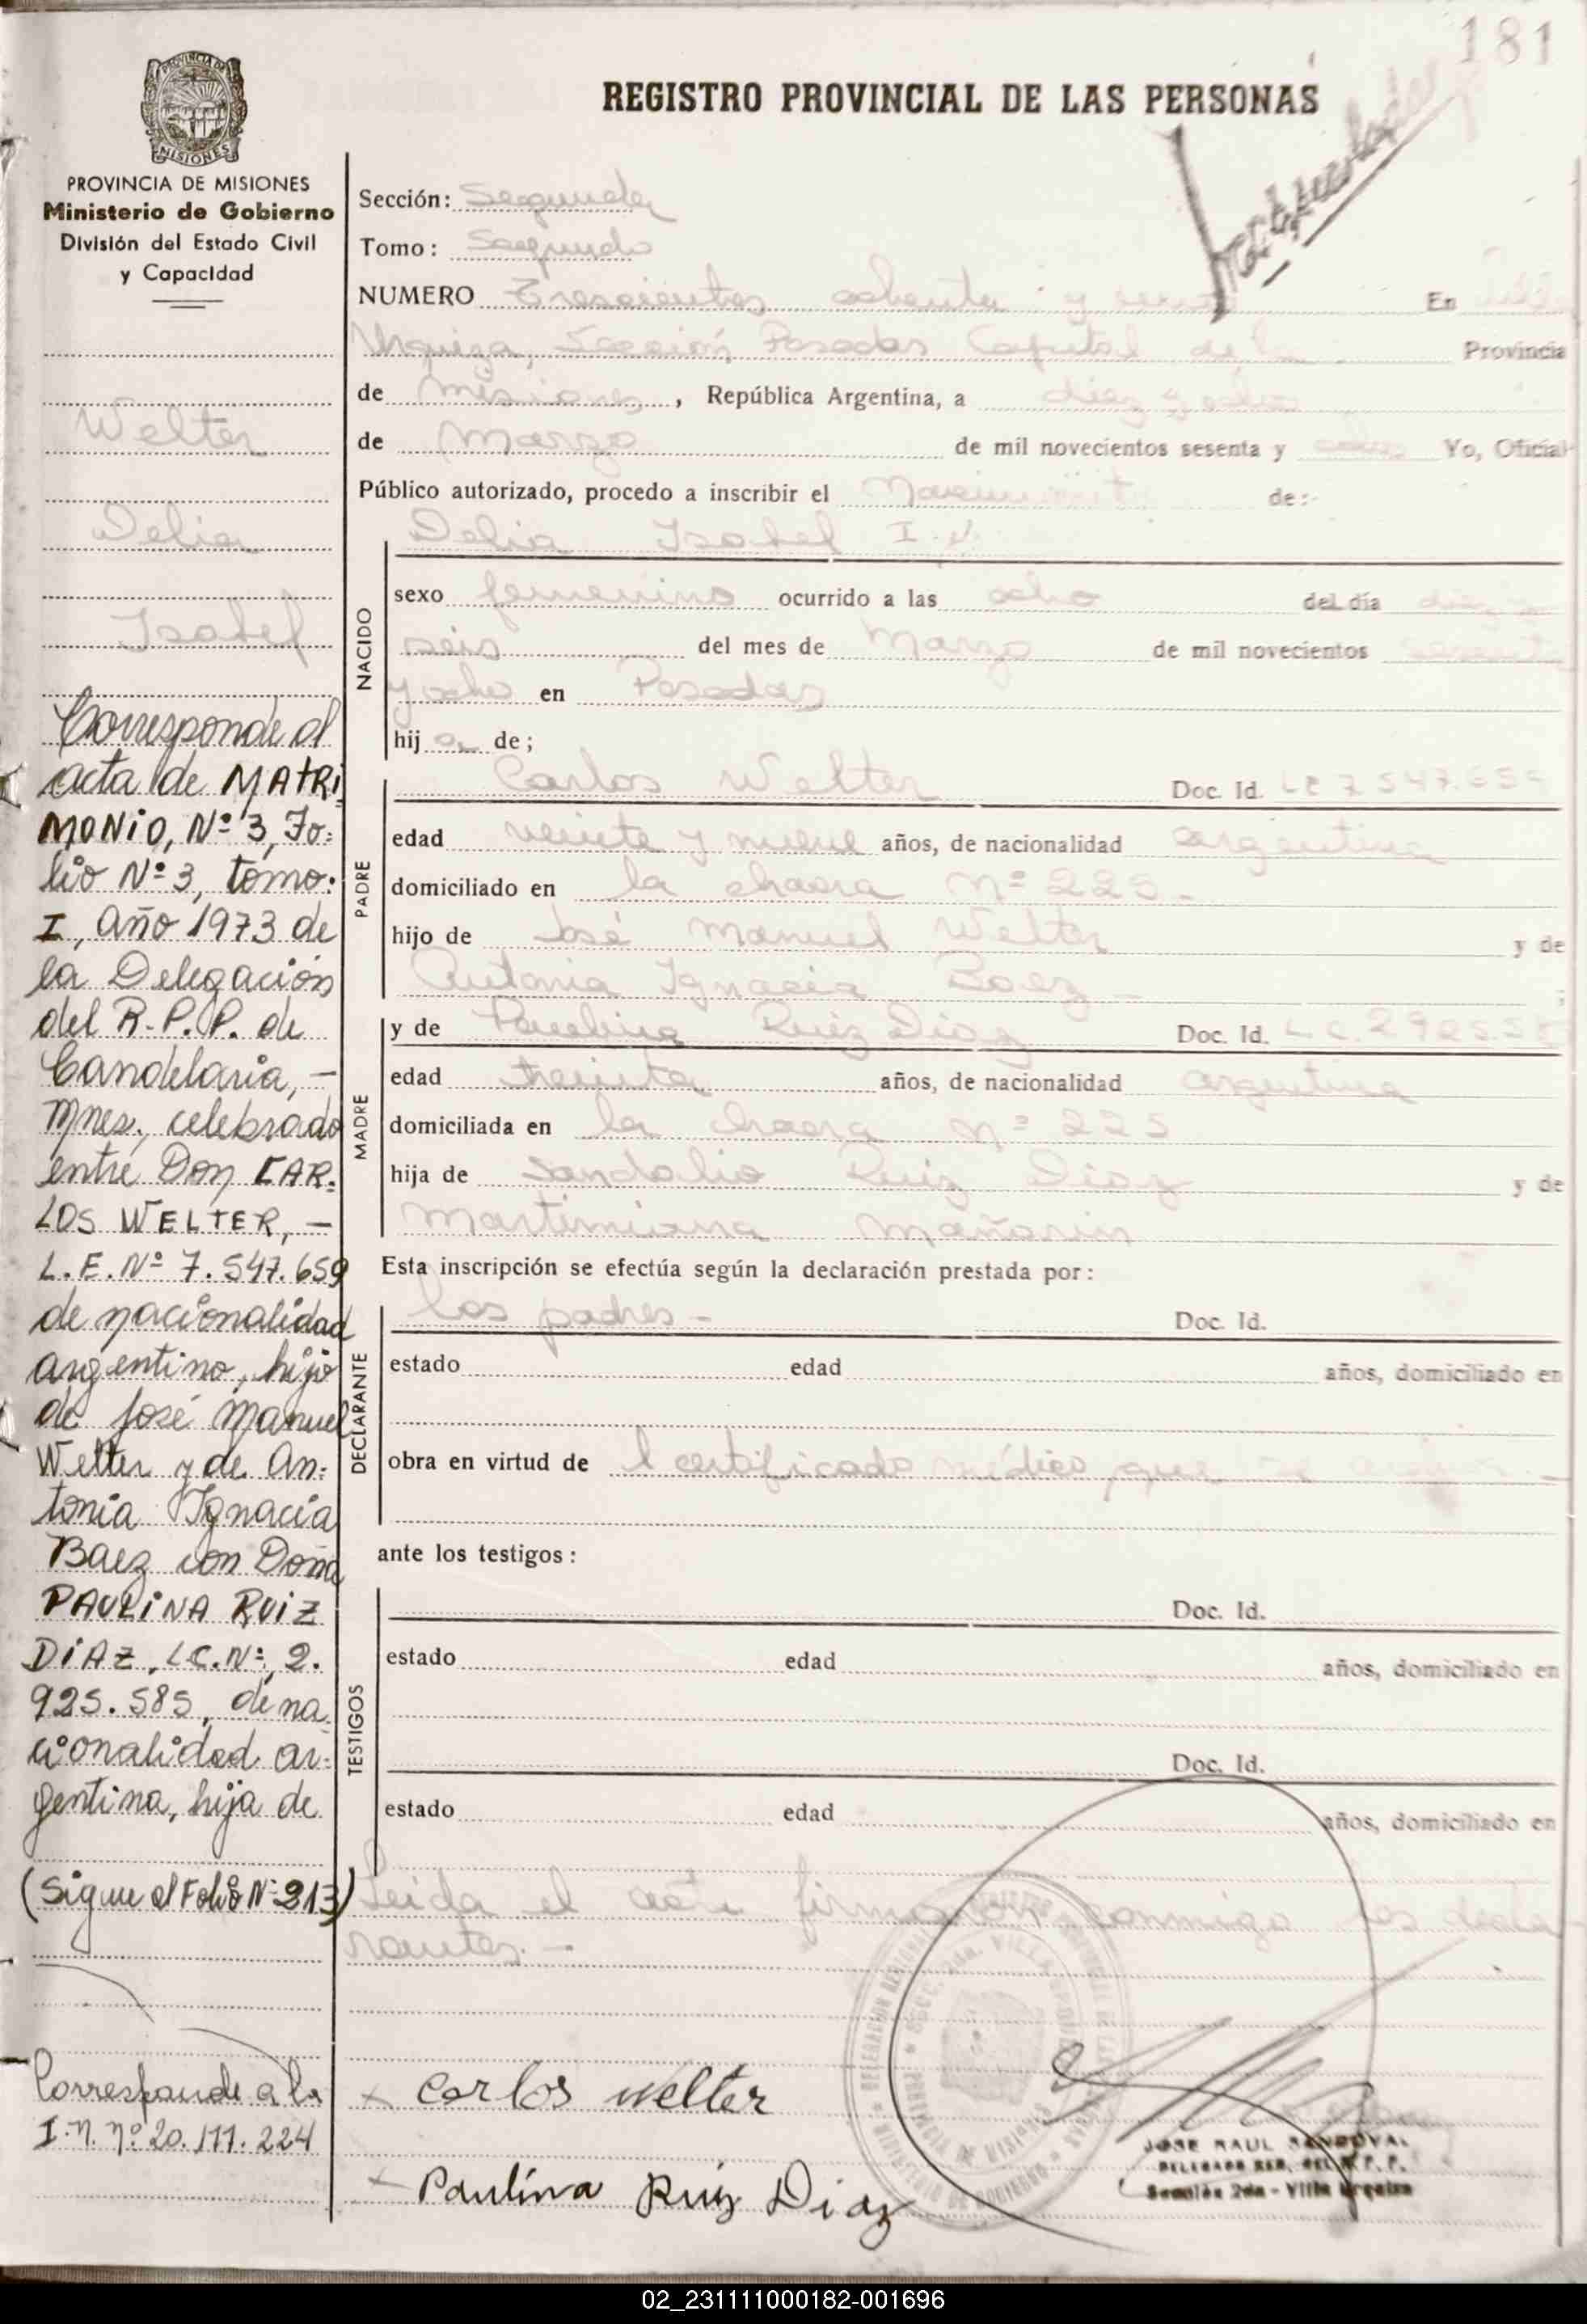 181
REGISTRO PROVINCIAL DE LAS PERSONAS
PROVINCIA DE MISIONES
Ministerio de Gobierno
División del Estado Civil
y Capacidad
Welter
Delia
Isabel
Corresponde al
acta de MATRI
MONIO, Nº 3, Fo-
lio Nº 3, tomo:
I, año 1973 de
la Delegación
del R.P.P. de
Candelaria, -
Mnes, celebrado
entre Don CAR-
LOS WELTER, -
L.E. Nº 7.547.659
de nacionalidad
argentino, hijo
de José Manuel
Welter y de An-
tonia Ignacia
Baez con Doña
PAULINA RUIZ
DIAZ, L.C. Nº, 2.
925.585, de na
cionalidad ar-
gentina, hija de
(Sigue al Folio Nº 213)
Corresponde a la
I.N. nº 20.111.224
Sección: Segunda
Tomo: Segundo
NUMERO Trescientos ochenta y En Villa
Urquiza, Sección Posadas Capital de la Provincia
de Misiones, República Argentina, a diez y ocho
de Marzo de mil novecientos sesenta y ocho Yo, Oficial
Público autorizado, procedo a inscribir el Nacimiento de:
Delia Isabel
NACIDO
sexo femenino ocurrido a las ocho del día diez y
seis del mes de Marzo de mil novecientos sesenta
y ocho en Posadas
hij a de;
PADRE
Carlos Welter Doc. Id. LE 7.547.659
edad veinte y nueve años, de nacionalidad argentina
domiciliado en la chacra nº 225 -
hijo de José Manuel Welter y de
Antonia Ignacia Baez - ;
MADRE
y de Paulina Ruiz Diaz Doc. Id. L.C. 2925.585
edad treinta años, de nacionalidad argentina
domiciliada en la chacra nº 225
hija de Sandalio Ruiz Diaz y de
Martimiana Mañarin
Esta inscripción se efectúa según la declaración prestada por:
DECLARANTE
los padres - Doc. Id.
estado edad años, domiciliado en
obra en virtud de l certificado médico que se
ante los testigos:
TESTIGOS
Doc. Id.
estado edad años, domiciliado en
Doc. Id.
estado edad años, domiciliado en
Leida el acta firmaron conmigo los decla
rantes. -
x Carlos Welter
x Paulina Ruiz Diaz
JOSE RAUL SANDOVAL
DELEGADO SEC. DEL R.P.P.
Sección 2da - Villa Urquiza
02_231111000182-001696